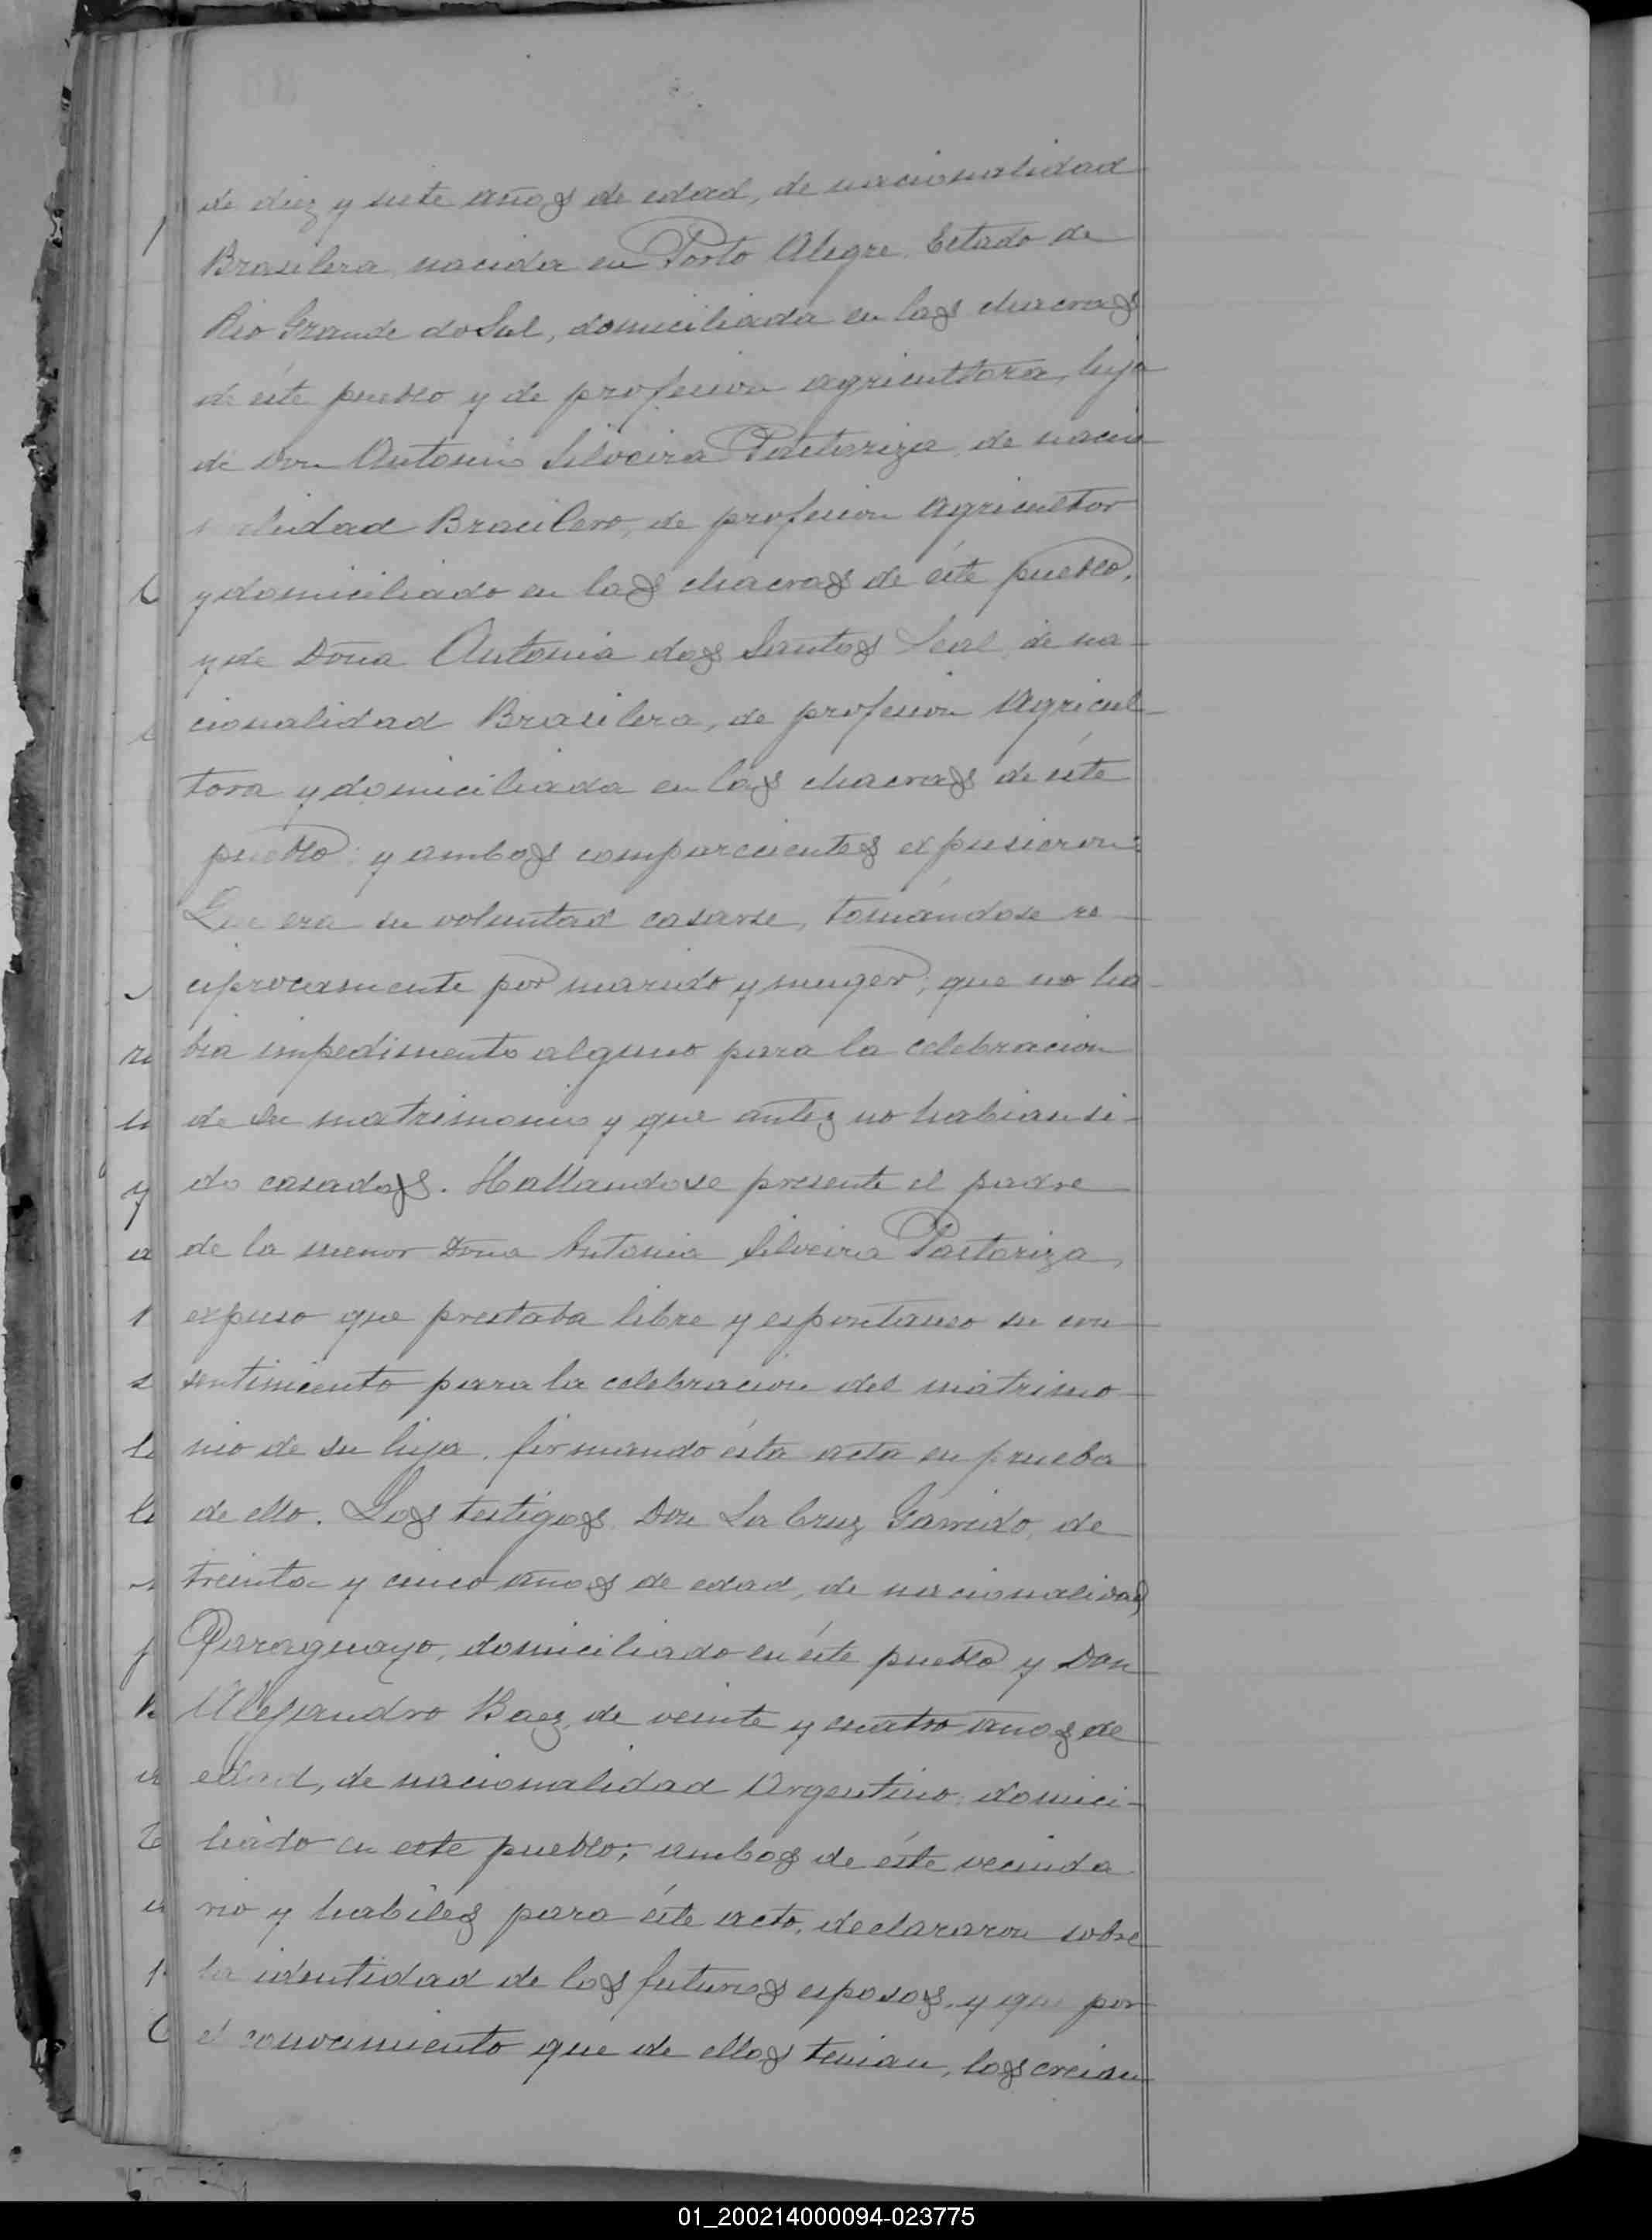 de diez y siete años de edad, de nacionalidad
Brasilera, nacida en Porto Alegre, Estado de
Rio Grande do Sul, domiciliada en las chacras
de éste pueblo y de profesion agricultora, hija
de Don Antonio Silveira Pastoriza, de nacio
nalidad Brasilero, de profesion Agricultor
y domiciliado en las chacras de éste pueblo,
y de Doña Antonia dos Santos Leal, de na-
cionalidad Brasilera, de profesion Agricul-
tora y domiciliada en las chacras de éste
pueblo; y ambos comparecientes expusieron:
Que era su voluntad casarse, tomándose re-
ciprocamente por marido y muger; que no ha-
bia impedimento alguno para la celebracion
de su matrimonio y que antes no habian si-
do casados. Hallandose presente el padre
de la menor Doña Antonia Silveira Pastoriza,
expuso que prestaba libre y espontaneo su con-
sentimiento para la celebracion del matrimo-
nio de su hija, firmando ésta acta en prueba
de ello. Los testigos, Don La Cruz Garrido, de
treinta y cinco años de edad, de nacionalidad
Paraguayo, domiciliado en éste pueblo y Don
Alejandro Baez, de veinte y cuatro años de
edad, de nacionalidad Argentino, domici-
liado en este pueblo; ambos de éste vecinda
rio y habiles para éste acto, declararon sobre
la identidad de los futuros esposos, y que por
el conocimiento que de ellos tenian, los creian
01_200214000094-023775